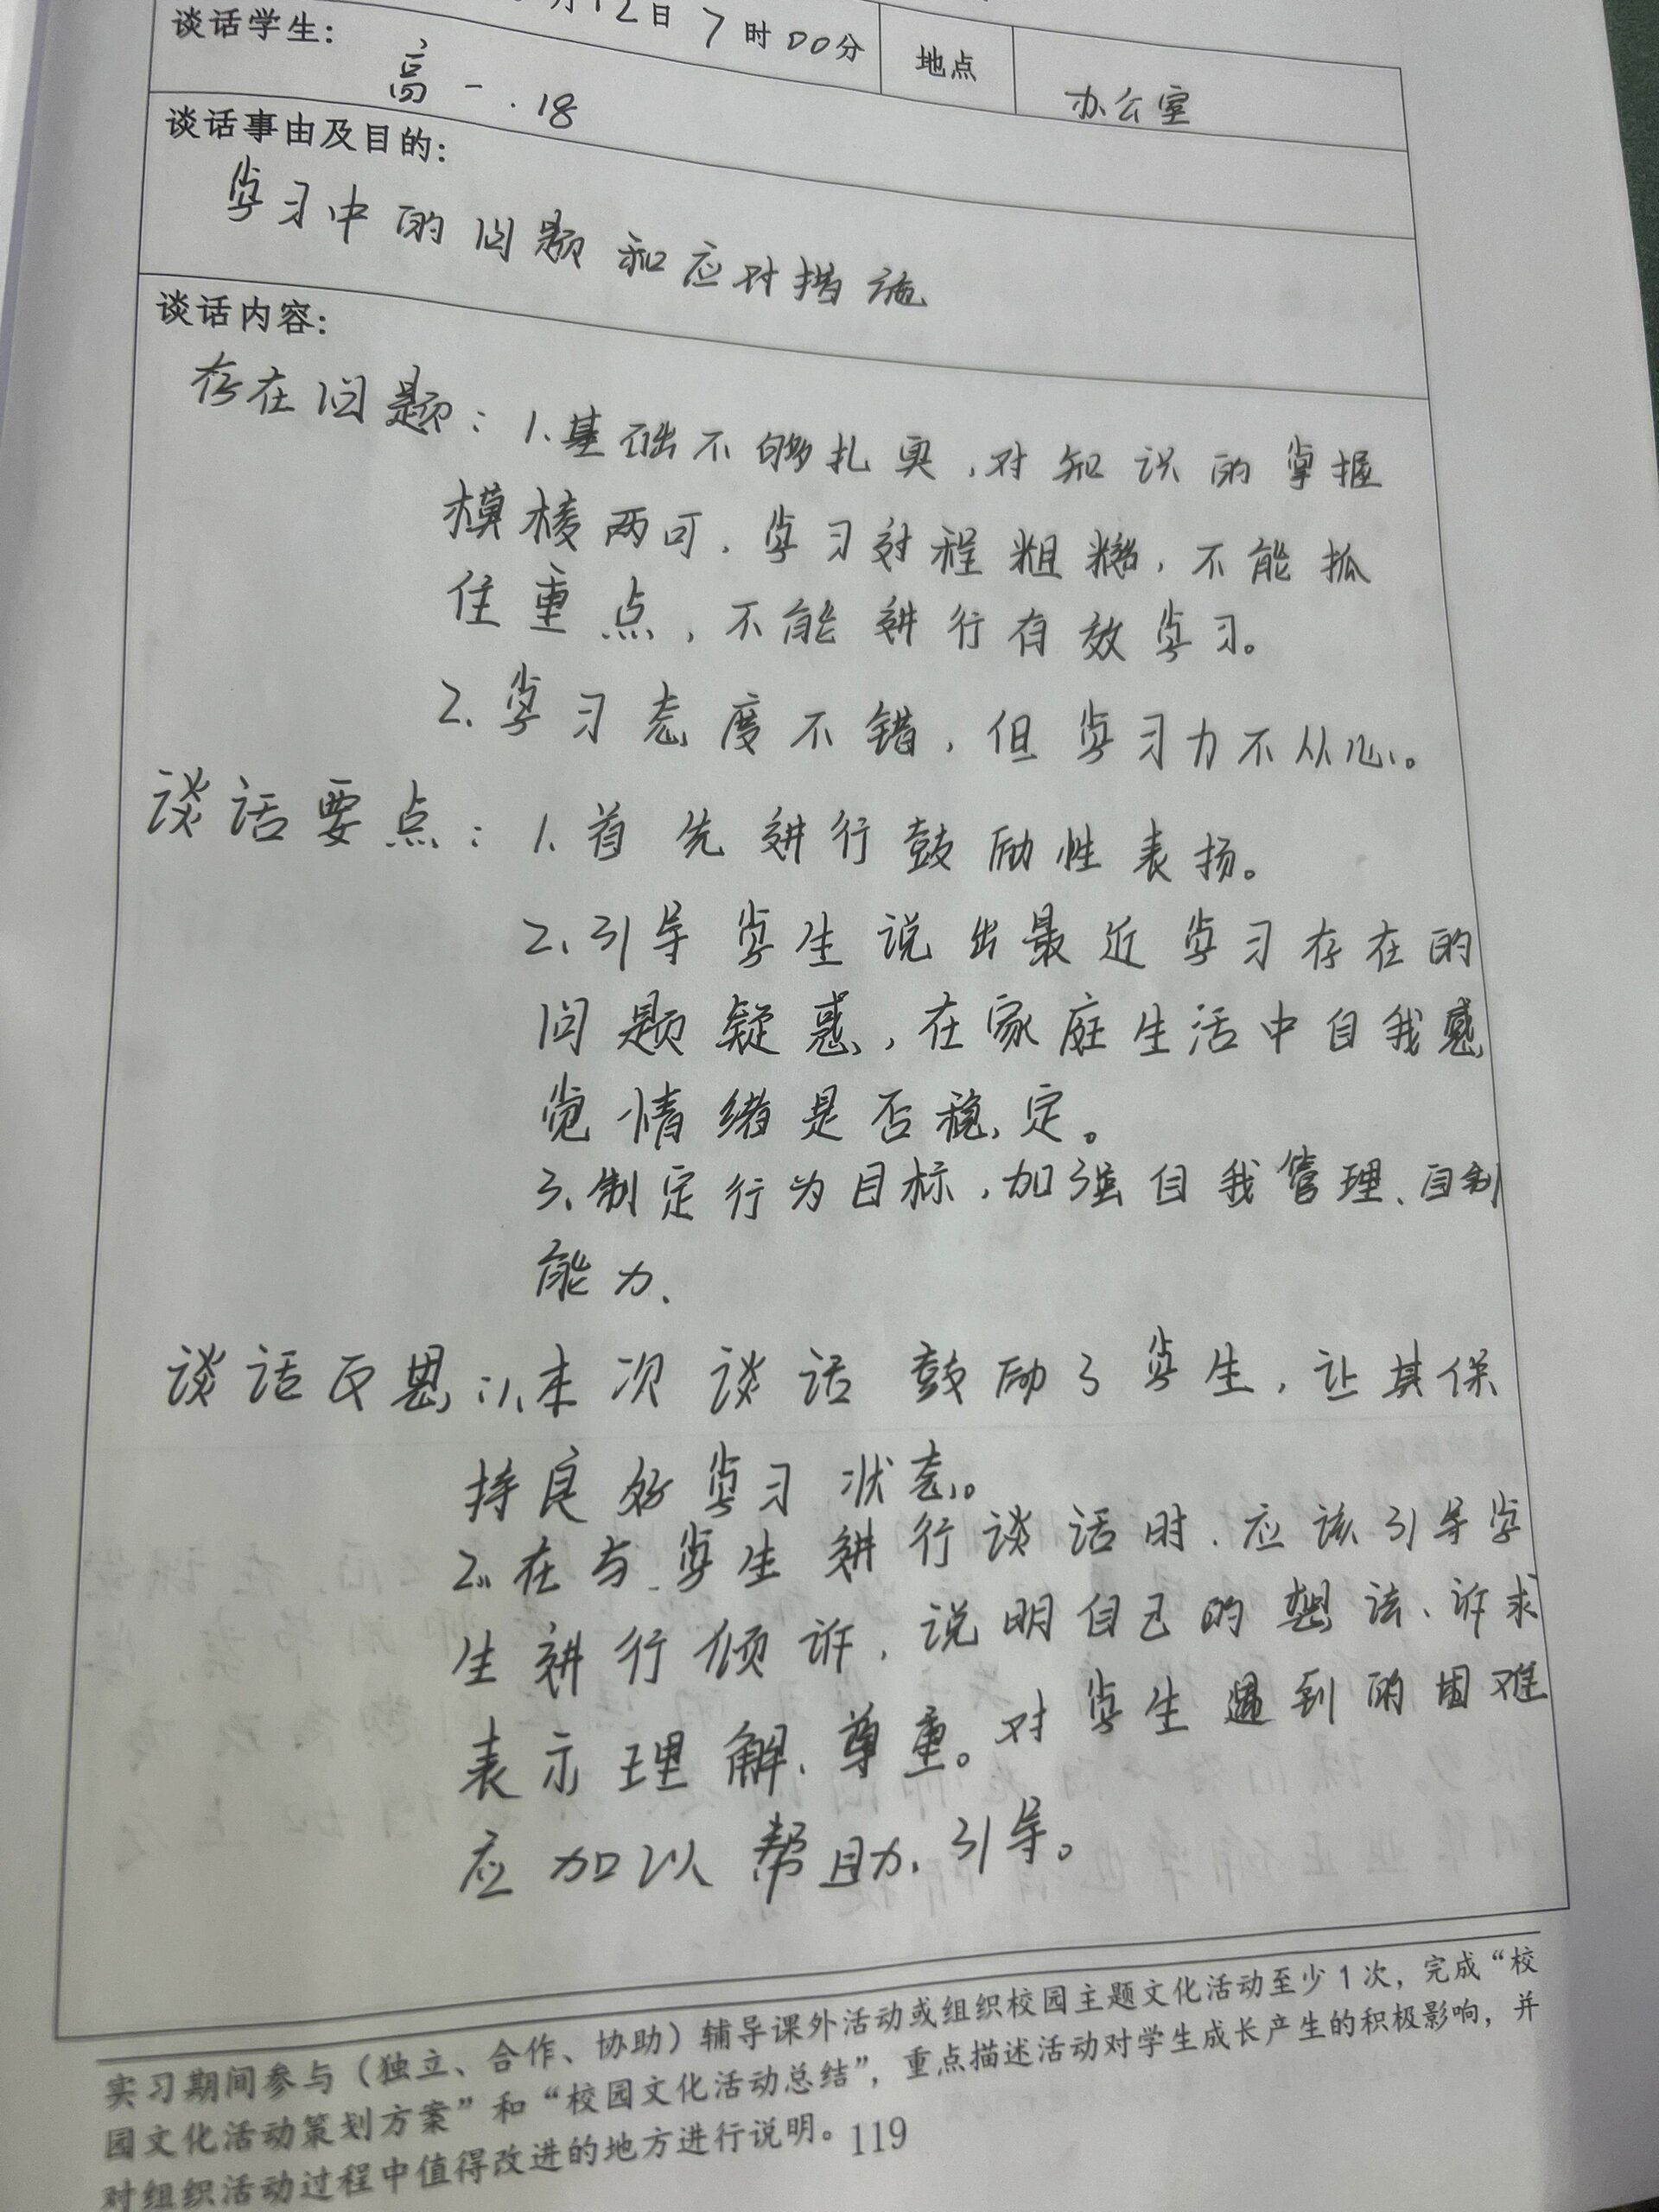 月12日 7时00分 地点 办公室
谈话学生：
高一.18
谈话事由及目的：
学习中的问题和应对措施
谈话内容：
存在问题：1.基础不够扎实，对知识的掌握
模棱两可，学习过程粗糙，不能抓
住重点，不能进行有效学习。
2.学习态度不错，但学习力不从心。
谈话要点：1.首先进行鼓励性表扬。
2.引导学生说出最近学习存在的
问题疑惑，在家庭生活中自我感
觉情绪是否稳定。
3.制定行为目标，加强自我管理、自制
能力、
谈话反思：1.本次谈话鼓励了学生，让其保
持良好学习状态。
2.在与学生进行谈话时，应该引导学
生进行倾诉，说明自己的想法、诉求
表示理解、尊重。对学生遇到的困难
应加以帮助、引导。
实习期间参与（独立、合作、协助）辅导课外活动或组织校园主题文化活动至少1次，完成“校
园文化活动策划方案”和“校园文化活动总结”，重点描述活动对学生成长产生的积极影响，并
对组织活动过程中值得改进的地方进行说明。
119